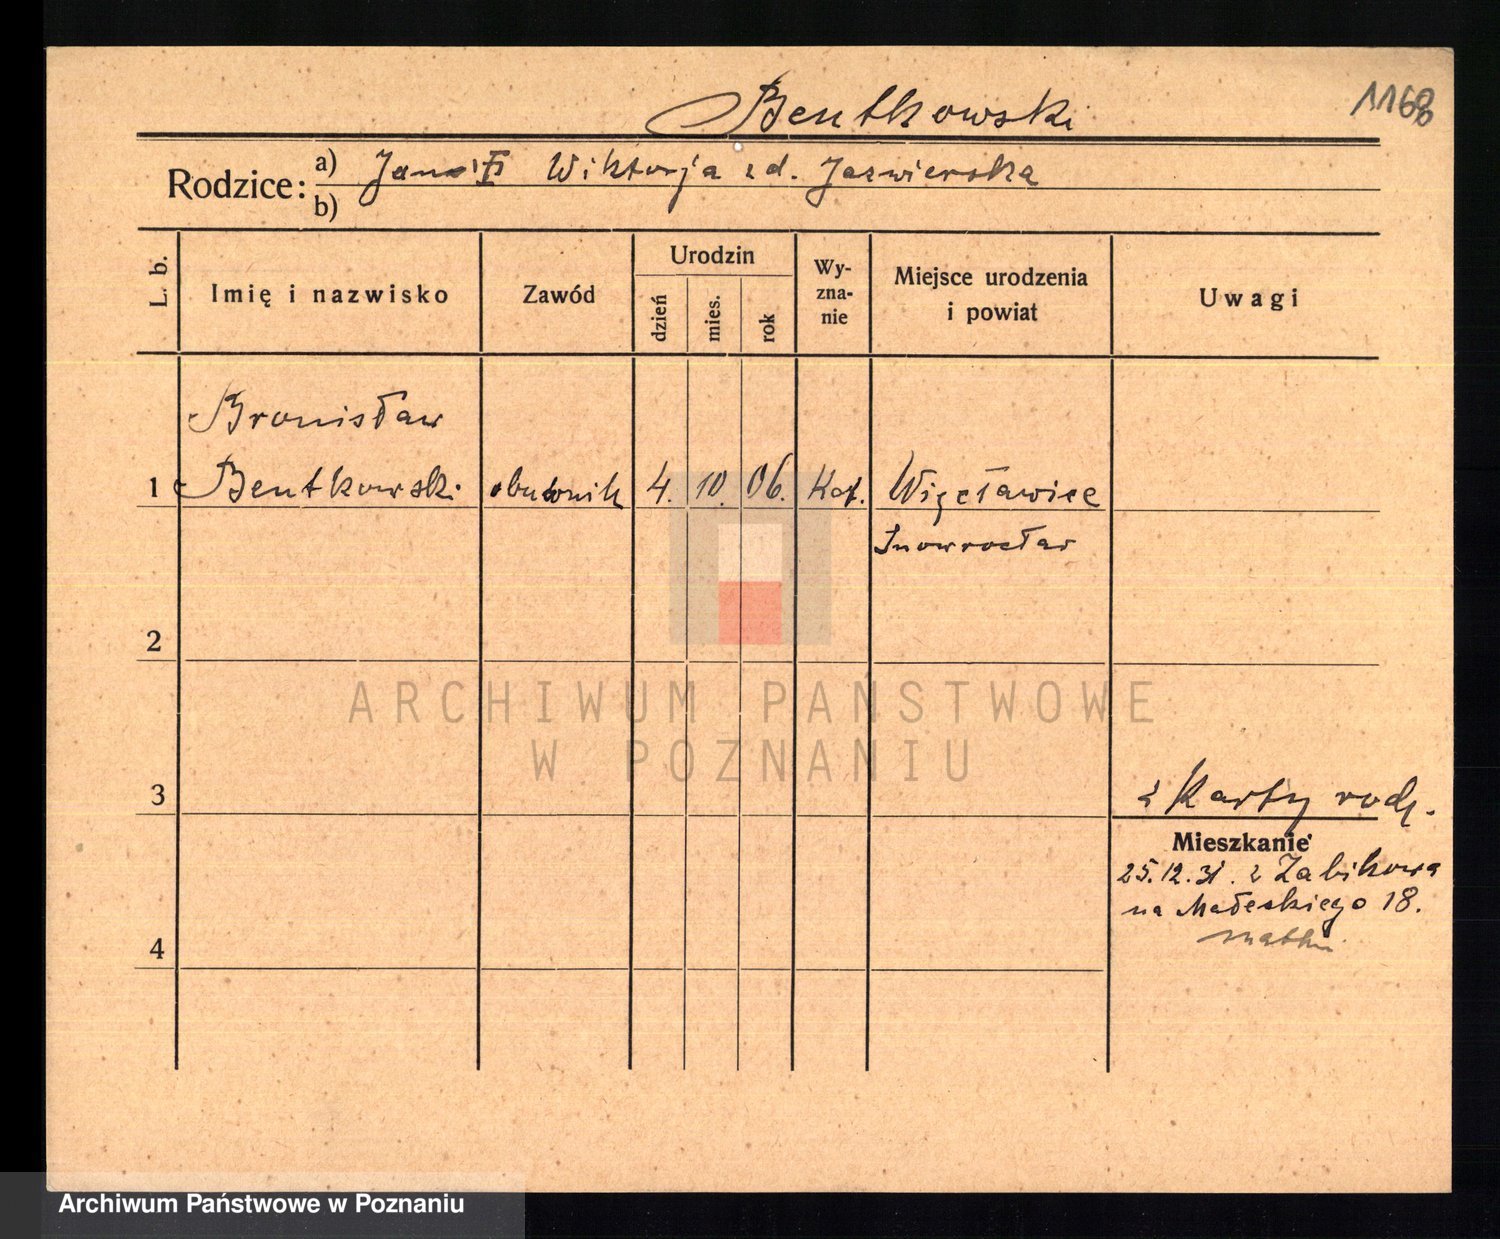 1168
Bentkowski
Rodzice: a) Jan i Wiktorja z d. Jaźwierska
b)
L. b. Imię i nazwisko Zawód Urodzin dzień mies. rok Wy-zna-nie Miejsce urodzenia i powiat Uwagi
Bronisław
1 Bentkowski obuwnik 4. 10. 06. Kat. Więcławice
Inowrocław
2
ARCHIWUM PAŃSTWOWE
W POZNANIU
3 z Karty rodz.
Mieszkanie
25.12.31. z Żabikowa
na Małeckiego 18.
4
Archiwum Państwowe w Poznaniu